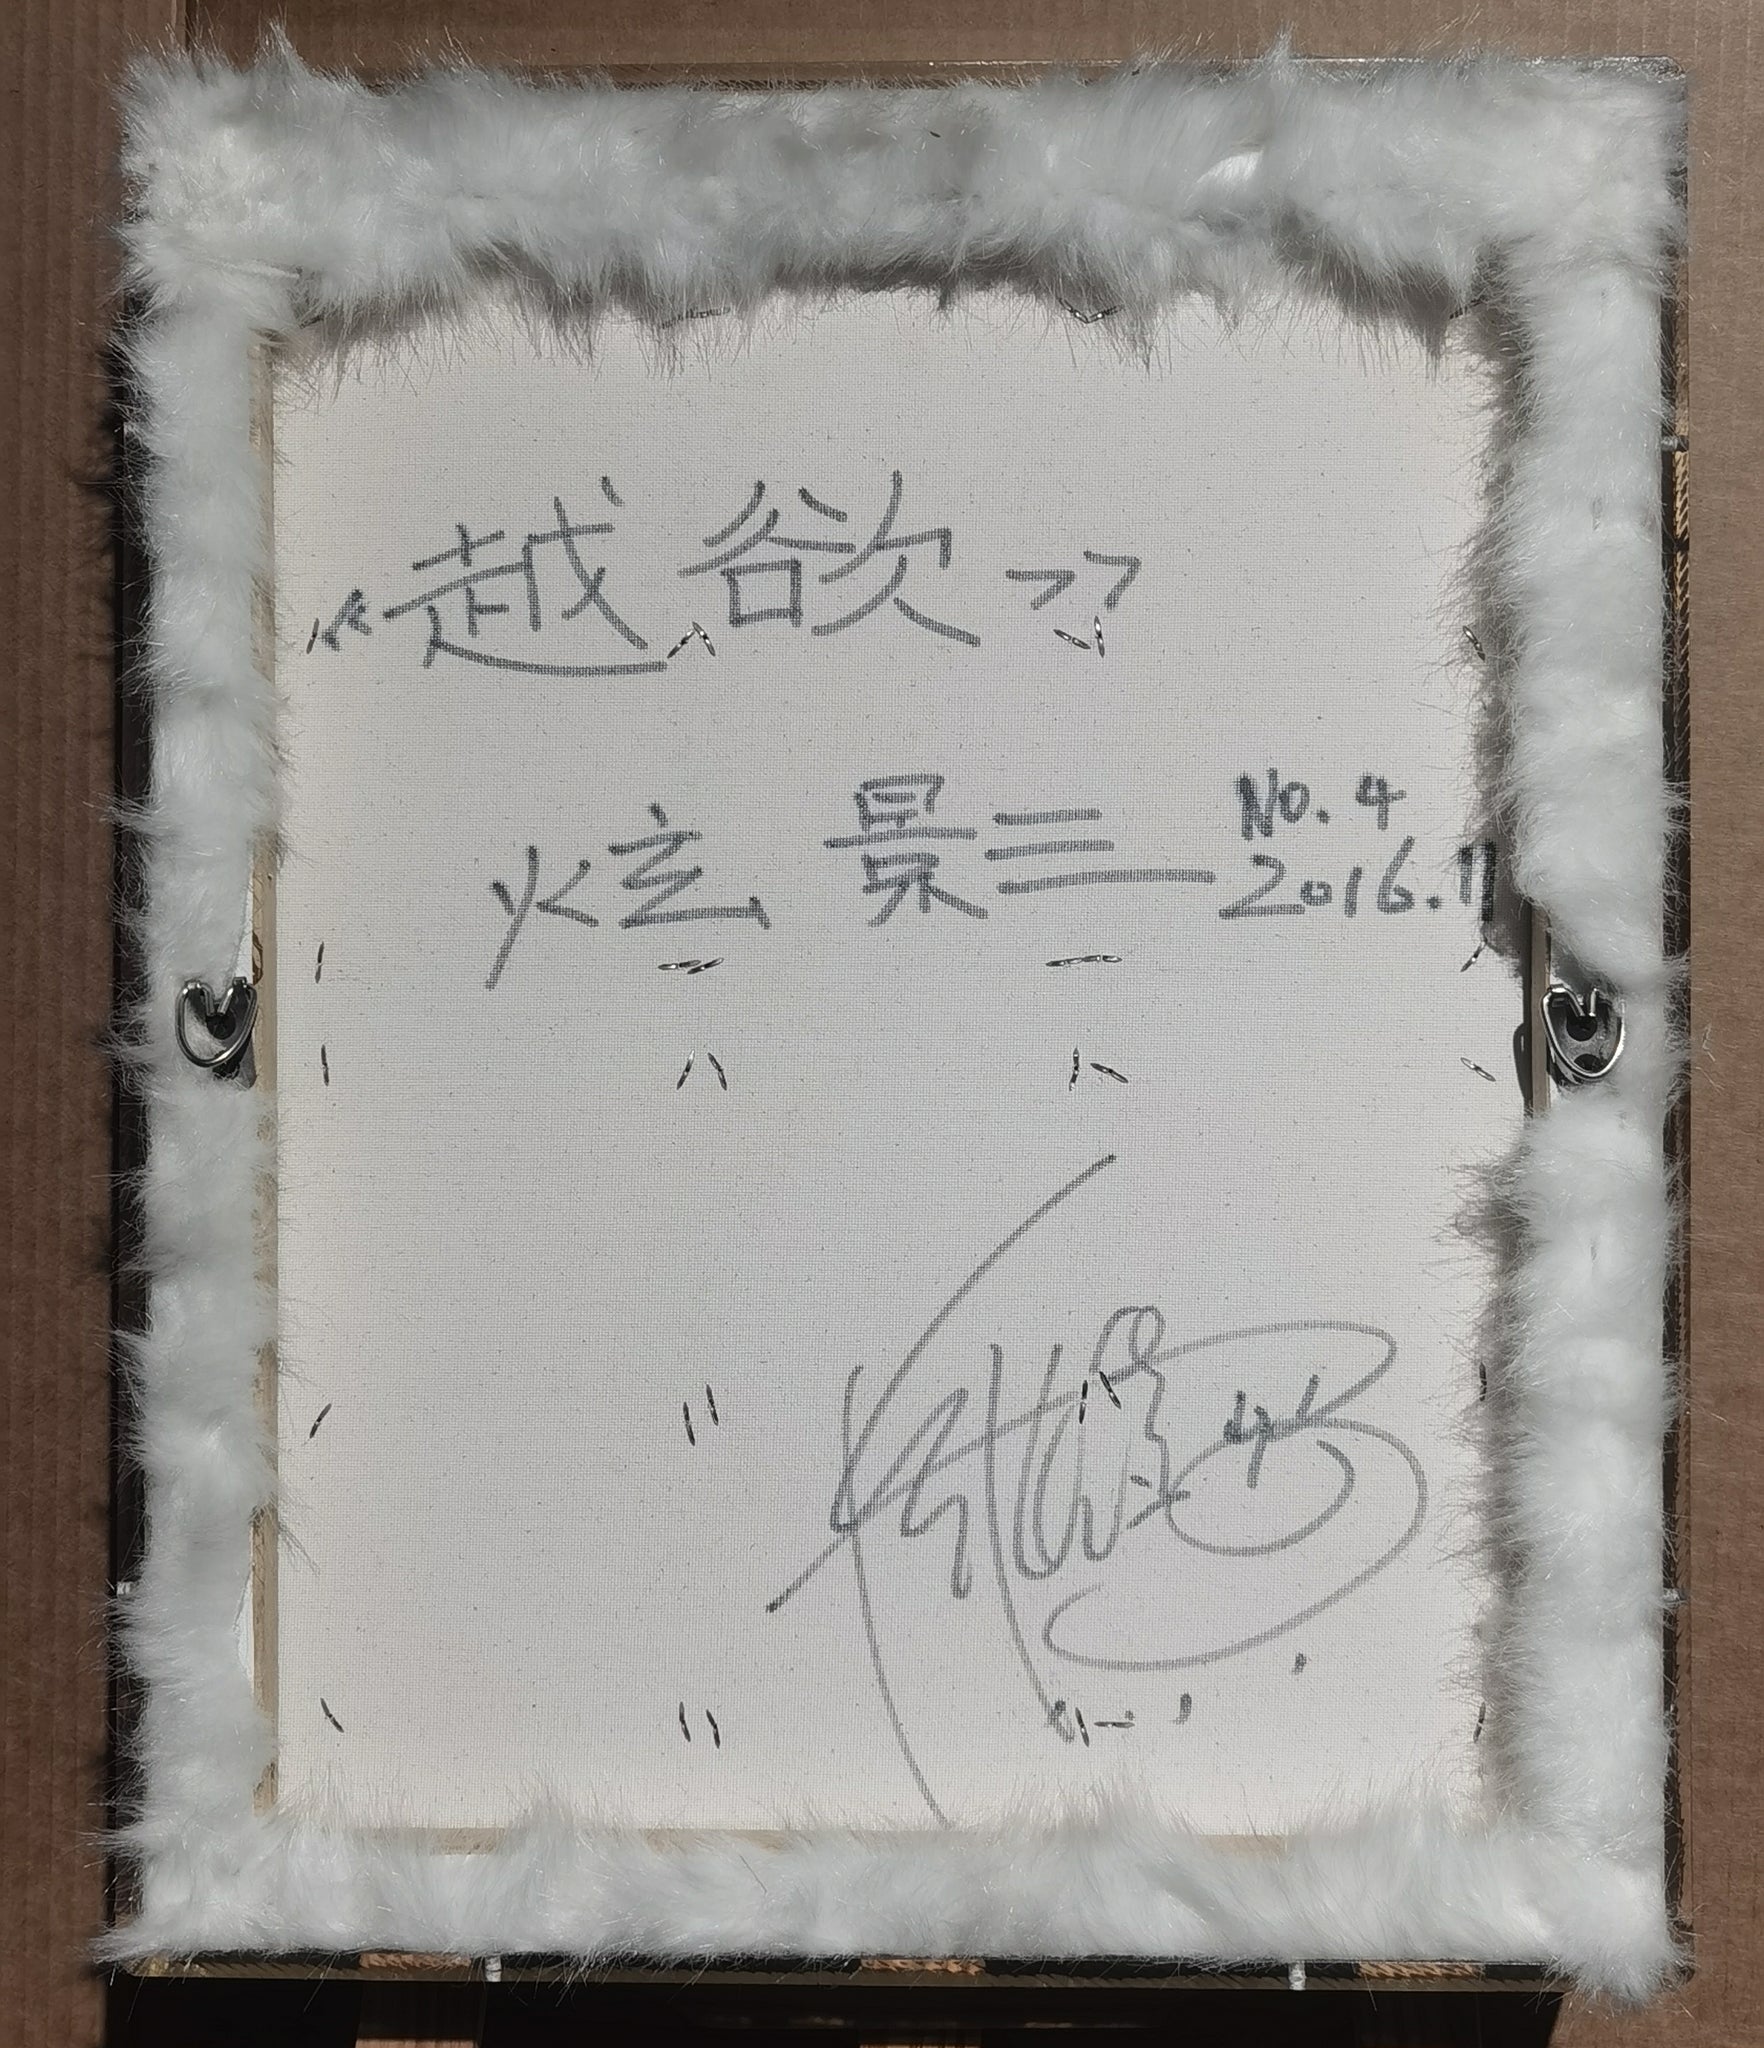 《越欲》
炫景三 No.4
2016.11